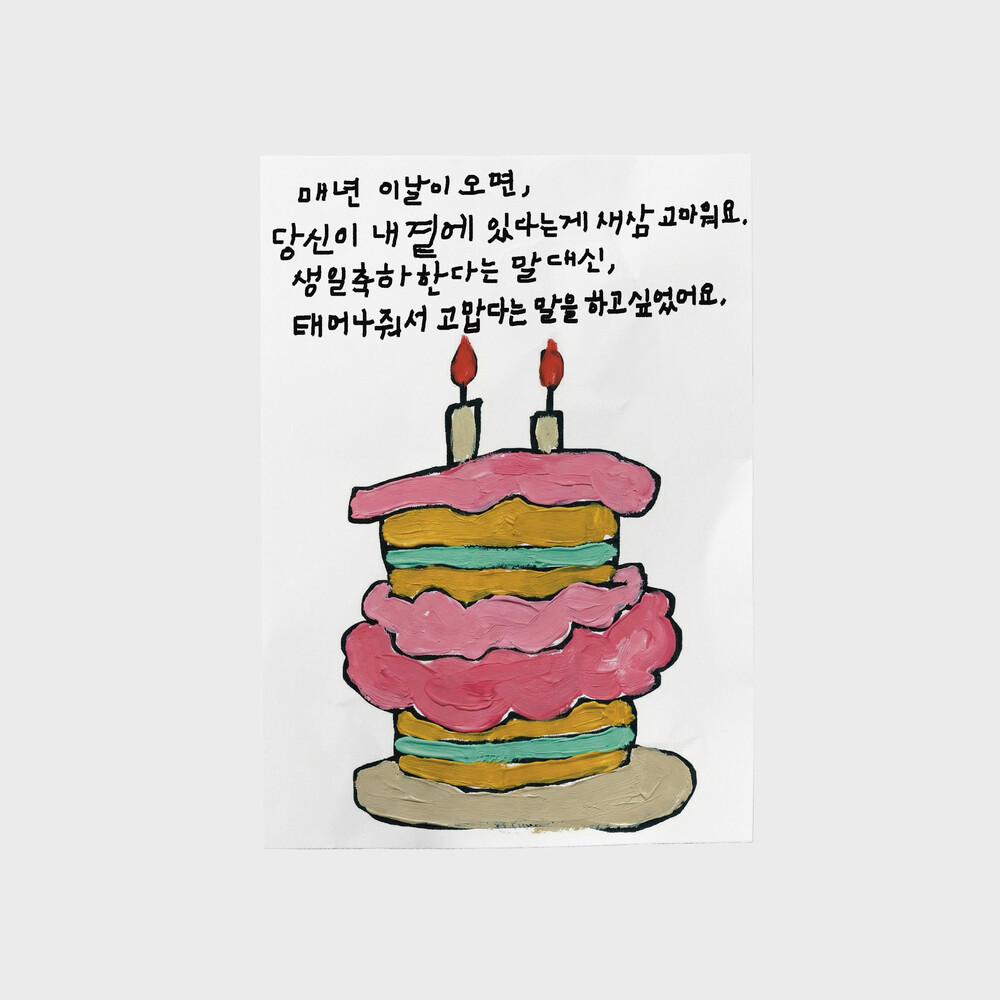 매년 이날이 오면,
당신이 내 곁에 있다는게 새삼 고마워요.
생일축하 한다는 말 대신,
태어나줘서 고맙다는 말을 하고싶었어요.